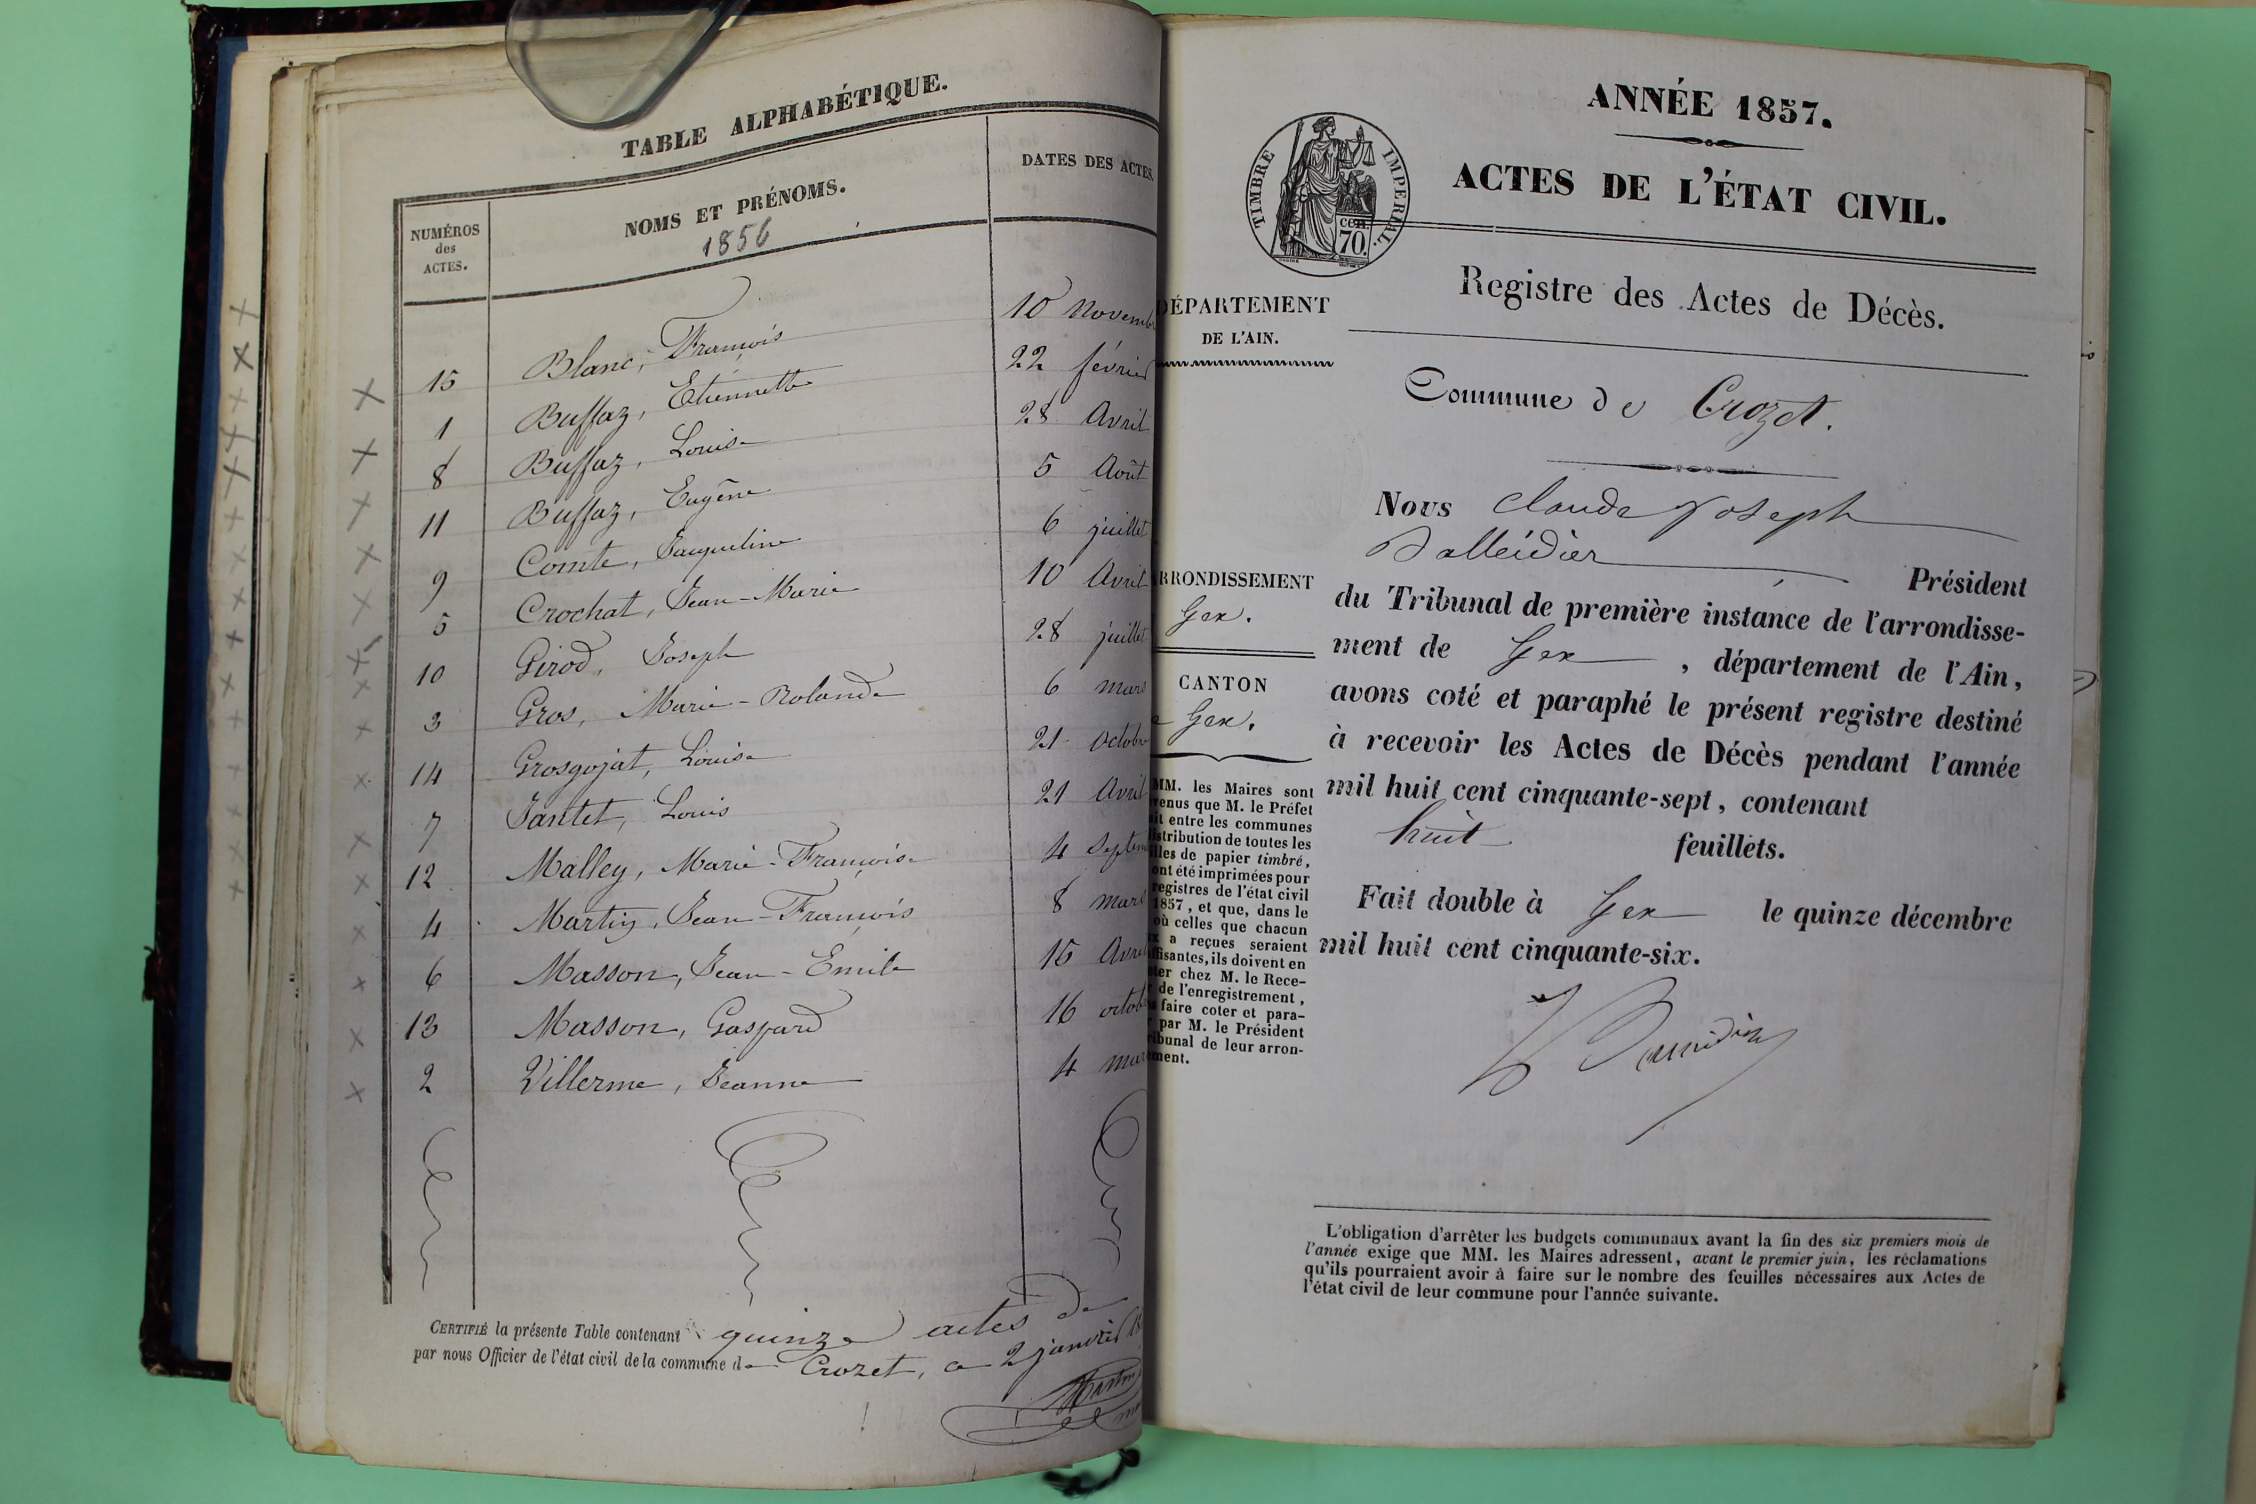 TABLE ALPHABÉTIQUE.
NUMÉROS
des
ACTES.
NOMS ET PRÉNOMS.
1856
DATES DES ACTES.
15 Blanc, François 10 Novemb
1 Buffaz, Etiennette 22 février
8 Buffaz, Louise 28 Avril
11 Buffaz, Eugène 5 Août
9 Comte, Jacqueline 6 juillet
5 Crochat, Jean-Marie 10 Avril
10 Girod, Joseph 28 juillet
3 Gros, Marie-Rolande 6 mars
14 Grosgojat, Louise 21 octobre
7 Jantet, Louis 21 Avril
12 Malley, Marie-Françoise 4 Septem
4 Martin, Jean-François 8 mars
6 Masson, Jean-Emile 15 Avril
13 Masson, Gaspard 16 octob
2 Villerme, Jeanne 4 mar
CERTIFIÉ la présente Table contenant quinze actes de
par nous Officier de l'état civil de la commune de Crozet, ce 2 janvier 18
ANNÉE 1857.
ACTES DE L'ÉTAT CIVIL.
TIMBRE IMPERIAL.
cen.
70.
Registre des Actes de Décès.
DÉPARTEMENT
DE L'AIN.
Commune de Crozet.
Nous Claude Joseph
Président
du Tribunal de première instance de l'arrondisse-
ment de Gex, département de l'Ain,
avons coté et paraphé le présent registre destiné
à recevoir les Actes de Décès pendant l'année
mil huit cent cinquante-sept, contenant
huit feuillets.
Fait double à Gex le quinze décembre
mil huit cent cinquante-six.
RRONDISSEMENT
Gex.
CANTON
e Gex.
MM. les Maires sont
venus que M. le Préfet
ait entre les communes
istribution de toutes les
illes de papier timbré,
ont été imprimées pour
registres de l'état civil
1857, et que, dans le
où celles que chacun
x a reçues seraient
ffisantes, ils doivent en
ter chez M. le Rece-
r de l'enregistrement,
s faire coter et para-
r par M. le Président
ribunal de leur arron-
ment.
L'obligation d'arrêter les budgets communaux avant la fin des six premiers mois de
l'année exige que MM. les Maires adressent, avant le premier juin, les réclamations
qu'ils pourraient avoir à faire sur le nombre des feuilles nécessaires aux Actes de
l'état civil de leur commune pour l'année suivante.